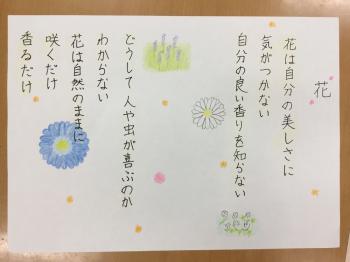 花
花は自分の美しさに
気がつかない
自分の良い香りを知らない
どうして人や虫が喜ぶのか
わからない
花は自然のままに
咲くだけ
香るだけ